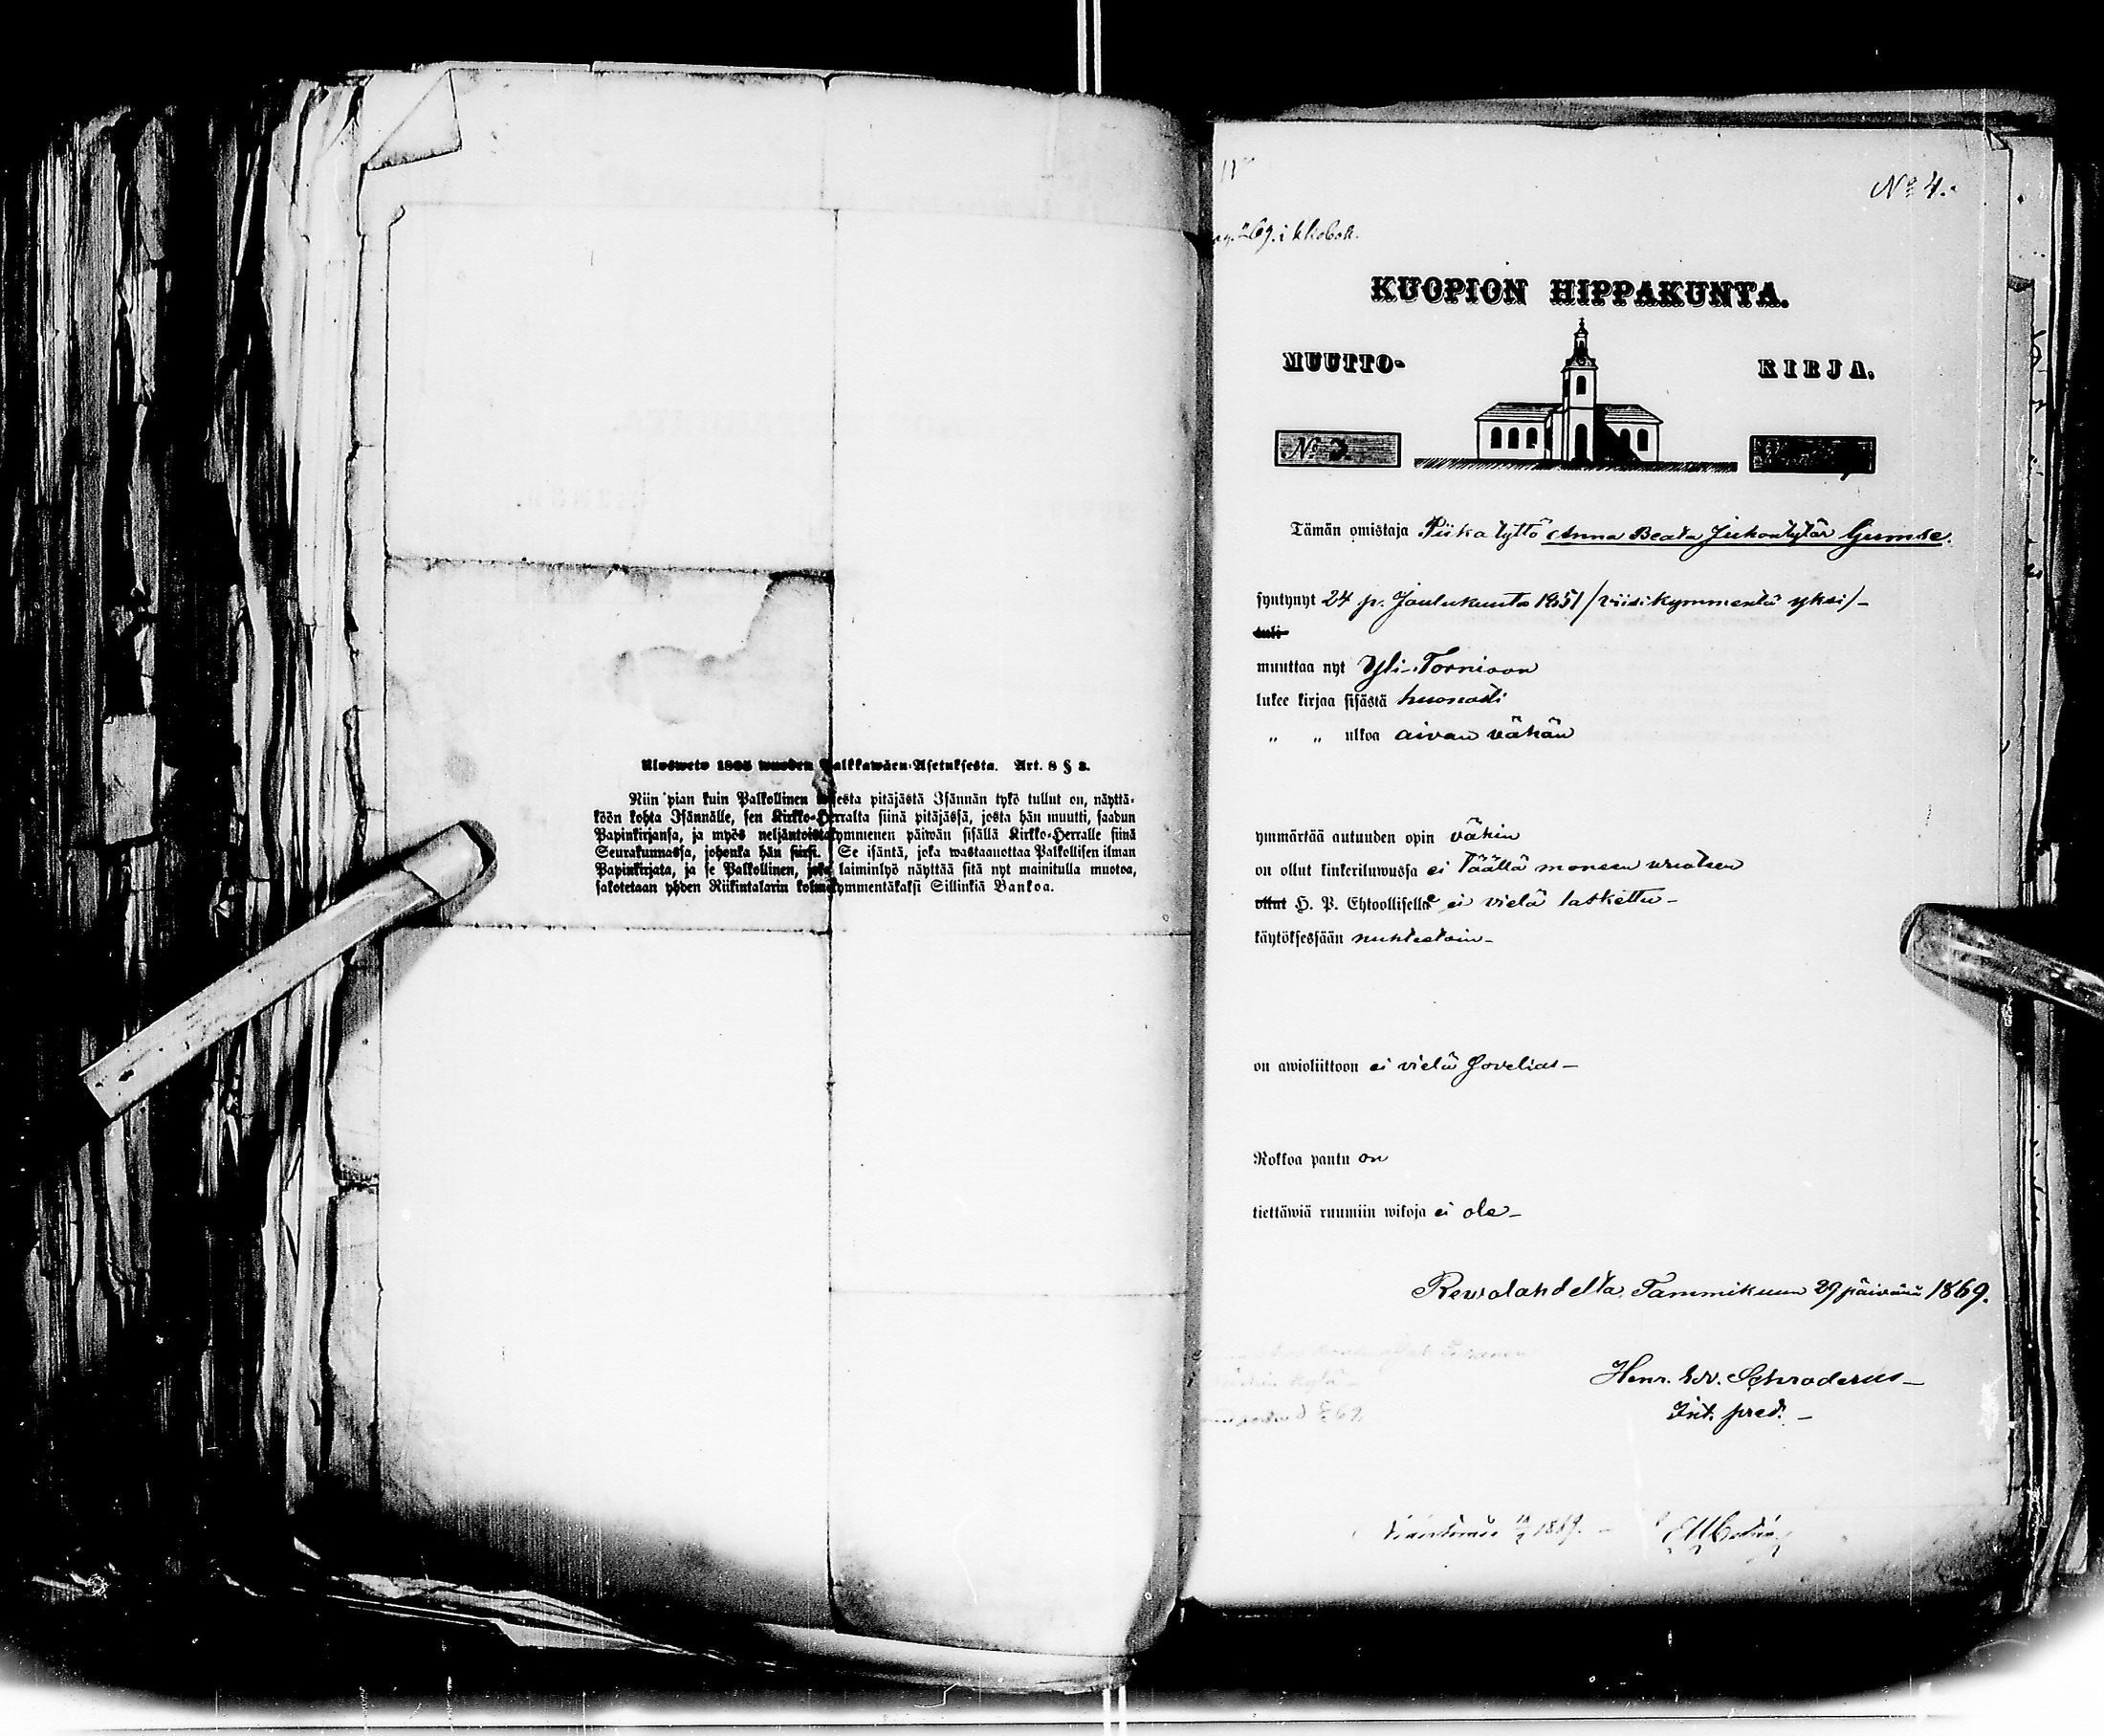 Ulosweto 1865 wuoden Palkkawäen-Asetuksesta. Art. 8 § 3.
Niin pian kuin Palkollinen toisesta pitäjästä Isännän tykö tullut on, näyttä-
köön kohta Isännälle, sen Kirkko-Herralta siinä pitäjässä, josta hän muutti, saadun
Papinkirjansa, ja myös neljäntoistakymmenen päiwän sisällä Kirkko-Herralle siinä
Seurakunnassa, johonka hän siirsi. Se isäntä, joka wastaanottaa Palkollisen ilman
Papinkirjata, ja se Palkollinen, joka laiminlyö näyttää sitä nyt mainitulla muotoa,
sakotetaan yhden Riikintalarin kolmekymmentäkaksi Sillinkiä Bankoa.
No 4.
269. i kkobok.
KUOPION HIPPAKUNTA.
MUUTTO- KIRJA.
No 3
Tämän omistaja Piika tyttö Anna Beata Juhontytär
syntynyt 24 p. Joulukuuta 1851 /viisikymmentä yksi/-
tuli
muuttaa nyt Yli-Tornioon
lukee kirjaa sisästä huonosti
" " ulkoa aivan vähän
ymmärtää autuuden opin vähin
on ollut kinkeriluwussa ei täällä moneen vuoteen
ollut H. P. Ehtoolliselle ei vielä laskettu-
käytöksessään nuhteetoin-
on awioliittoon ei vielä sovelias-
Rokkoa pantu on
tiettäwiä ruumiin wikoja ei ole-
Revonlahdella Tammikuun 29 päivänä 1869.
Henr. Schroderus-
Int. pred. -
1869.